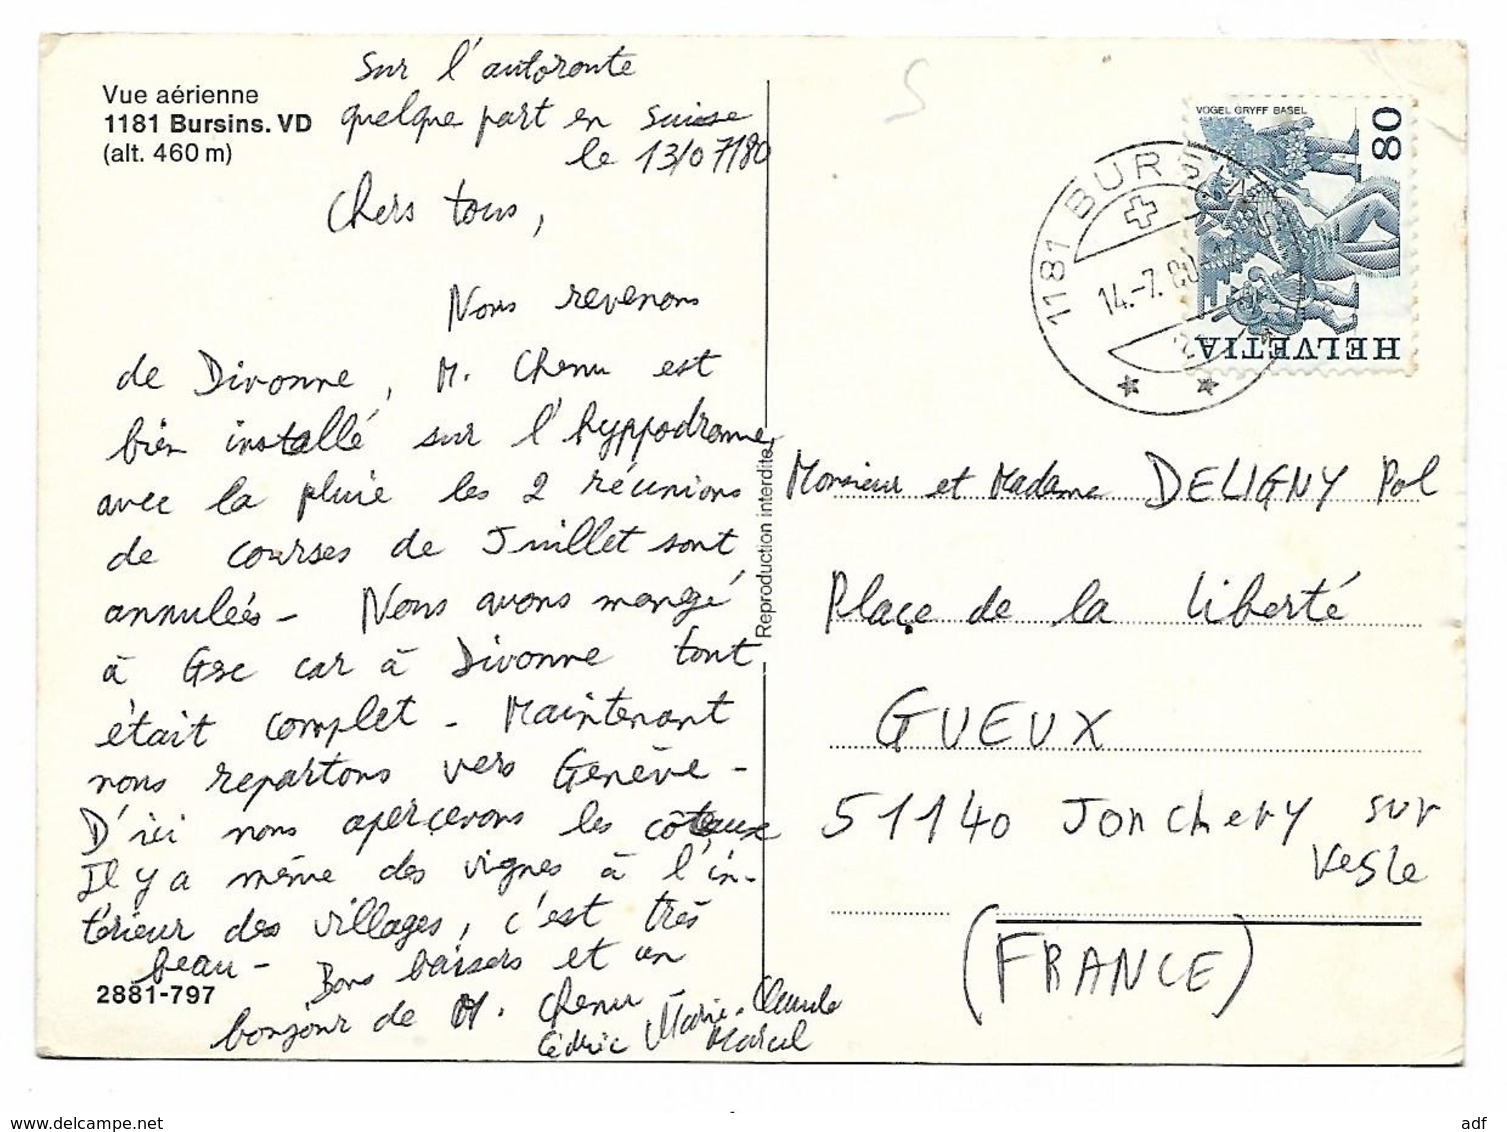 Vue aérienne
1181 Bursins. VD
(alt. 460 m)
Sur l'autoroute
quelque part en Suisse
le 13/07/80
Chers tous,
Nous revenons
de Divonne, M. Chenu est
bien installé sur l'hyppodrome,
avec la pluie les 2 réunions
de courses de Juillet sont
annulées - Nous avons mangé
à Gex car à Divonne tout
était complet - Maintenant
nous repartons vers Genève -
D'ici nous apercevons les côteaux
Il y a même des vignes à l'in-
térieur des villages, c'est très
beau - Bons baisers et un
bonjour de M. Chenu -
Marie-Claude
Cédric Marcel
2881-797
Reproduction interdite
VOGEL GRYFF BASEL
80
HELVETIA
1181 BURSINS
14.-7.80
Monsieur et Madame DELIGNY Pol
Place de la Liberté
GUEUX
51140 Jonchery sur
Vesle
(FRANCE)
www.delcampe.net
adf